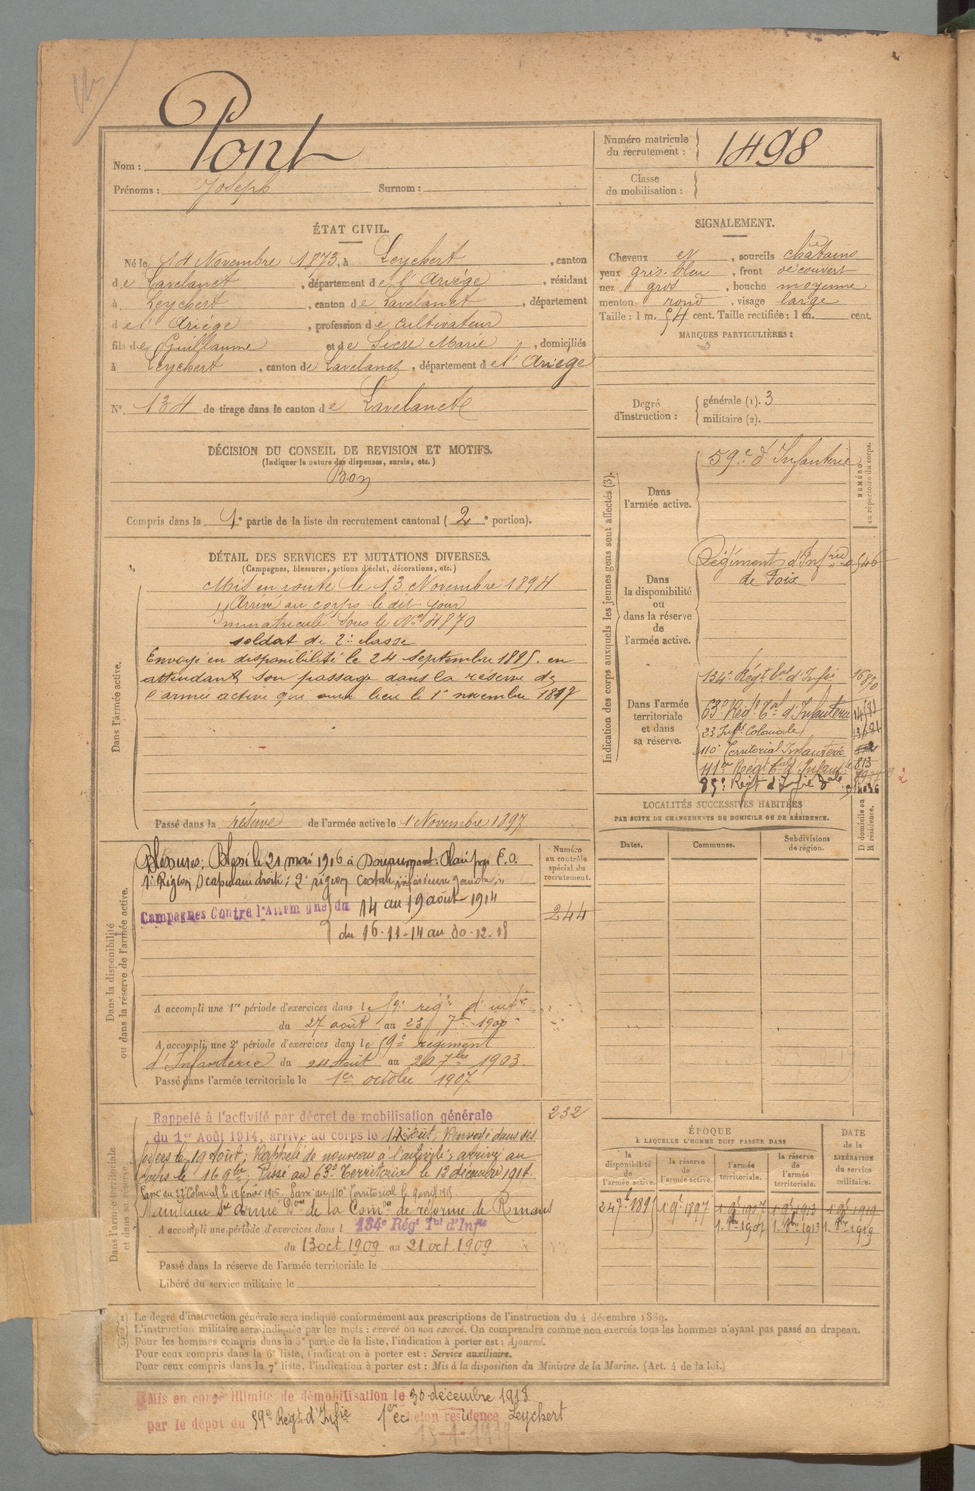 Pont
Nom :
Prénoms : Joseph Surnom :
Numéro matricule du recrutement : 1498
Classe de mobilisation :
ÉTAT CIVIL.
Né le 14 Novembre 1873, à Leychert, canton
de Lavelanet, département de l'Ariége, résidant
à Leychert, canton de Lavelanet, département
de l'Ariége, profession de cultivateur
fils de Guillaume et de Sicre Marie, domiciliés
à Leychert, canton de Lavelanet, département de l'Ariége
N° 134 de tirage dans le canton de Lavelanet
SIGNALEMENT.
Cheveux et, sourcils châtains
yeux gris-bleu, front découvert
nez gros, bouche moyenne
menton rond, visage large
Taille : 1 m. 54 cent. Taille rectifiée : 1 m. cent.
MARQUES PARTICULIÈRES :
Degré d'instruction : générale (1). 3
militaire (2).
DÉCISION DU CONSEIL DE REVISION ET MOTIFS.
(Indiquer la nature des dispenses, sursis, etc.)
Bon
Compris dans la 1e partie de la liste du recrutement cantonal (2e portion).
DÉTAIL DES SERVICES ET MUTATIONS DIVERSES.
(Campagnes, blessures, actions d'éclat, décorations, etc.)
Dans l'armée active.
Mis en route le 13 Novembre 1894
Arrivé au corps le dit jour
Immatriculé sous le No 4870
soldat de 2e classe
Envoyé en disponibilité le 24 septembre 1895. en
attendant son passage dans la réserve de
l'armée active qui aura lieu le 1er novembre 1897
Passé dans la réserve de l'armée active le 1 Novembre 1897
Indication des corps auxquels les jeunes gens sont affectés (3).
NUMÉRO au répertoire du corps.
Dans l'armée active.
59e d'Infanterie
Dans la disponibilité ou dans la réserve de l'armée active.
Régiment d'Infrie 1546
de Foix
Dans l'armée territoriale et dans sa réserve.
134e Régt tal d'Infie
63e Régt Tal d'Infanterie
23 Inft Coloniale
110e Territorial Infanterie
813
85e Régt d'Infie
LOCALITÉS SUCCESSIVES HABITÉES
PAR SUITE DE CHANGEMENTS DE DOMICILE OU DE RÉSIDENCE.
Dates. Communes. Subdivisions de région. D domicile ou R résidence.
Dans la disponibilité ou dans la réserve de l'armée active.
Numéro au contrôle spécial du recrutement.
244
Blessures; Blessé le 21 mai 1916 à Douaumont. Plaie par E.O.
1e Région scapulaire droite; 2e région costale inférieure gauche
Campagnes Contre l'Allemagne du 14 au 19 août 1914
du 16-11-14 au 30-12-18
A accompli une 1re période d'exercices dans le 59e régt d'infie
du 27 août au 23 7bre 1900
A accompli une 2e période d'exercices dans le 59e régiment
d'Infanterie du 24 Août au 20 7bre 1903.
Passé dans l'armée territoriale le 1er octobre 1907
Dans l'armée territoriale et dans sa réserve.
232
Rappelé à l'activité par décret de mobilisation générale
du 1er Août 1914, arrivé au corps le 14 août, Renvoyé dans ses
foyers le 19 août; Rappelé de nouveau à l'activité; arrivé au
corps le 16 9bre, Passé au 63e Territorial le 12 décembre 1914.
Maintenu Sce Armé Don de la Comon de réforme de Romans
A accompli une période d'exercices dans l 134e Régt Tal d'Infie
du 13 oct 1909 au 21 oct 1909
Passé dans la réserve de l'armée territoriale le
Libéré du service militaire le
ÉPOQUE
À LAQUELLE L'HOMME DOIT PASSER DANS
la disponibilité de l'armée active. la réserve de l'armée active. l'armée territoriale. la réserve de l'armée territoriale.
DATE de la LIBÉRATION du service militaire.
24 7bre 1895 1 9bre 1897 1 9bre 1907 1 9bre 1913 1 9bre 1919
(1) Le degré d'instruction générale sera indiqué conformément aux prescriptions de l'instruction du 4 décembre 1889.
(2) L'instruction militaire sera indiquée par les mots : exercé ou non exercé. On comprendra comme non exercés tous les hommes n'ayant pas passé au drapeau.
(3) Pour les hommes compris dans la 5e partie de la liste, l'indication à porter est : Ajourné.
Pour ceux compris dans la 6e liste, l'indication à porter est : Service auxiliaire.
Pour ceux compris dans la 7e liste, l'indication à porter est : Mis à la disposition du Ministre de la Marine. (Art. 4 de la loi.)
Mis en congé illimité de démobilisation le 30 décembre 1918
par le dépôt du 59e Régt d'Infie 1er échelon résidence Leychert